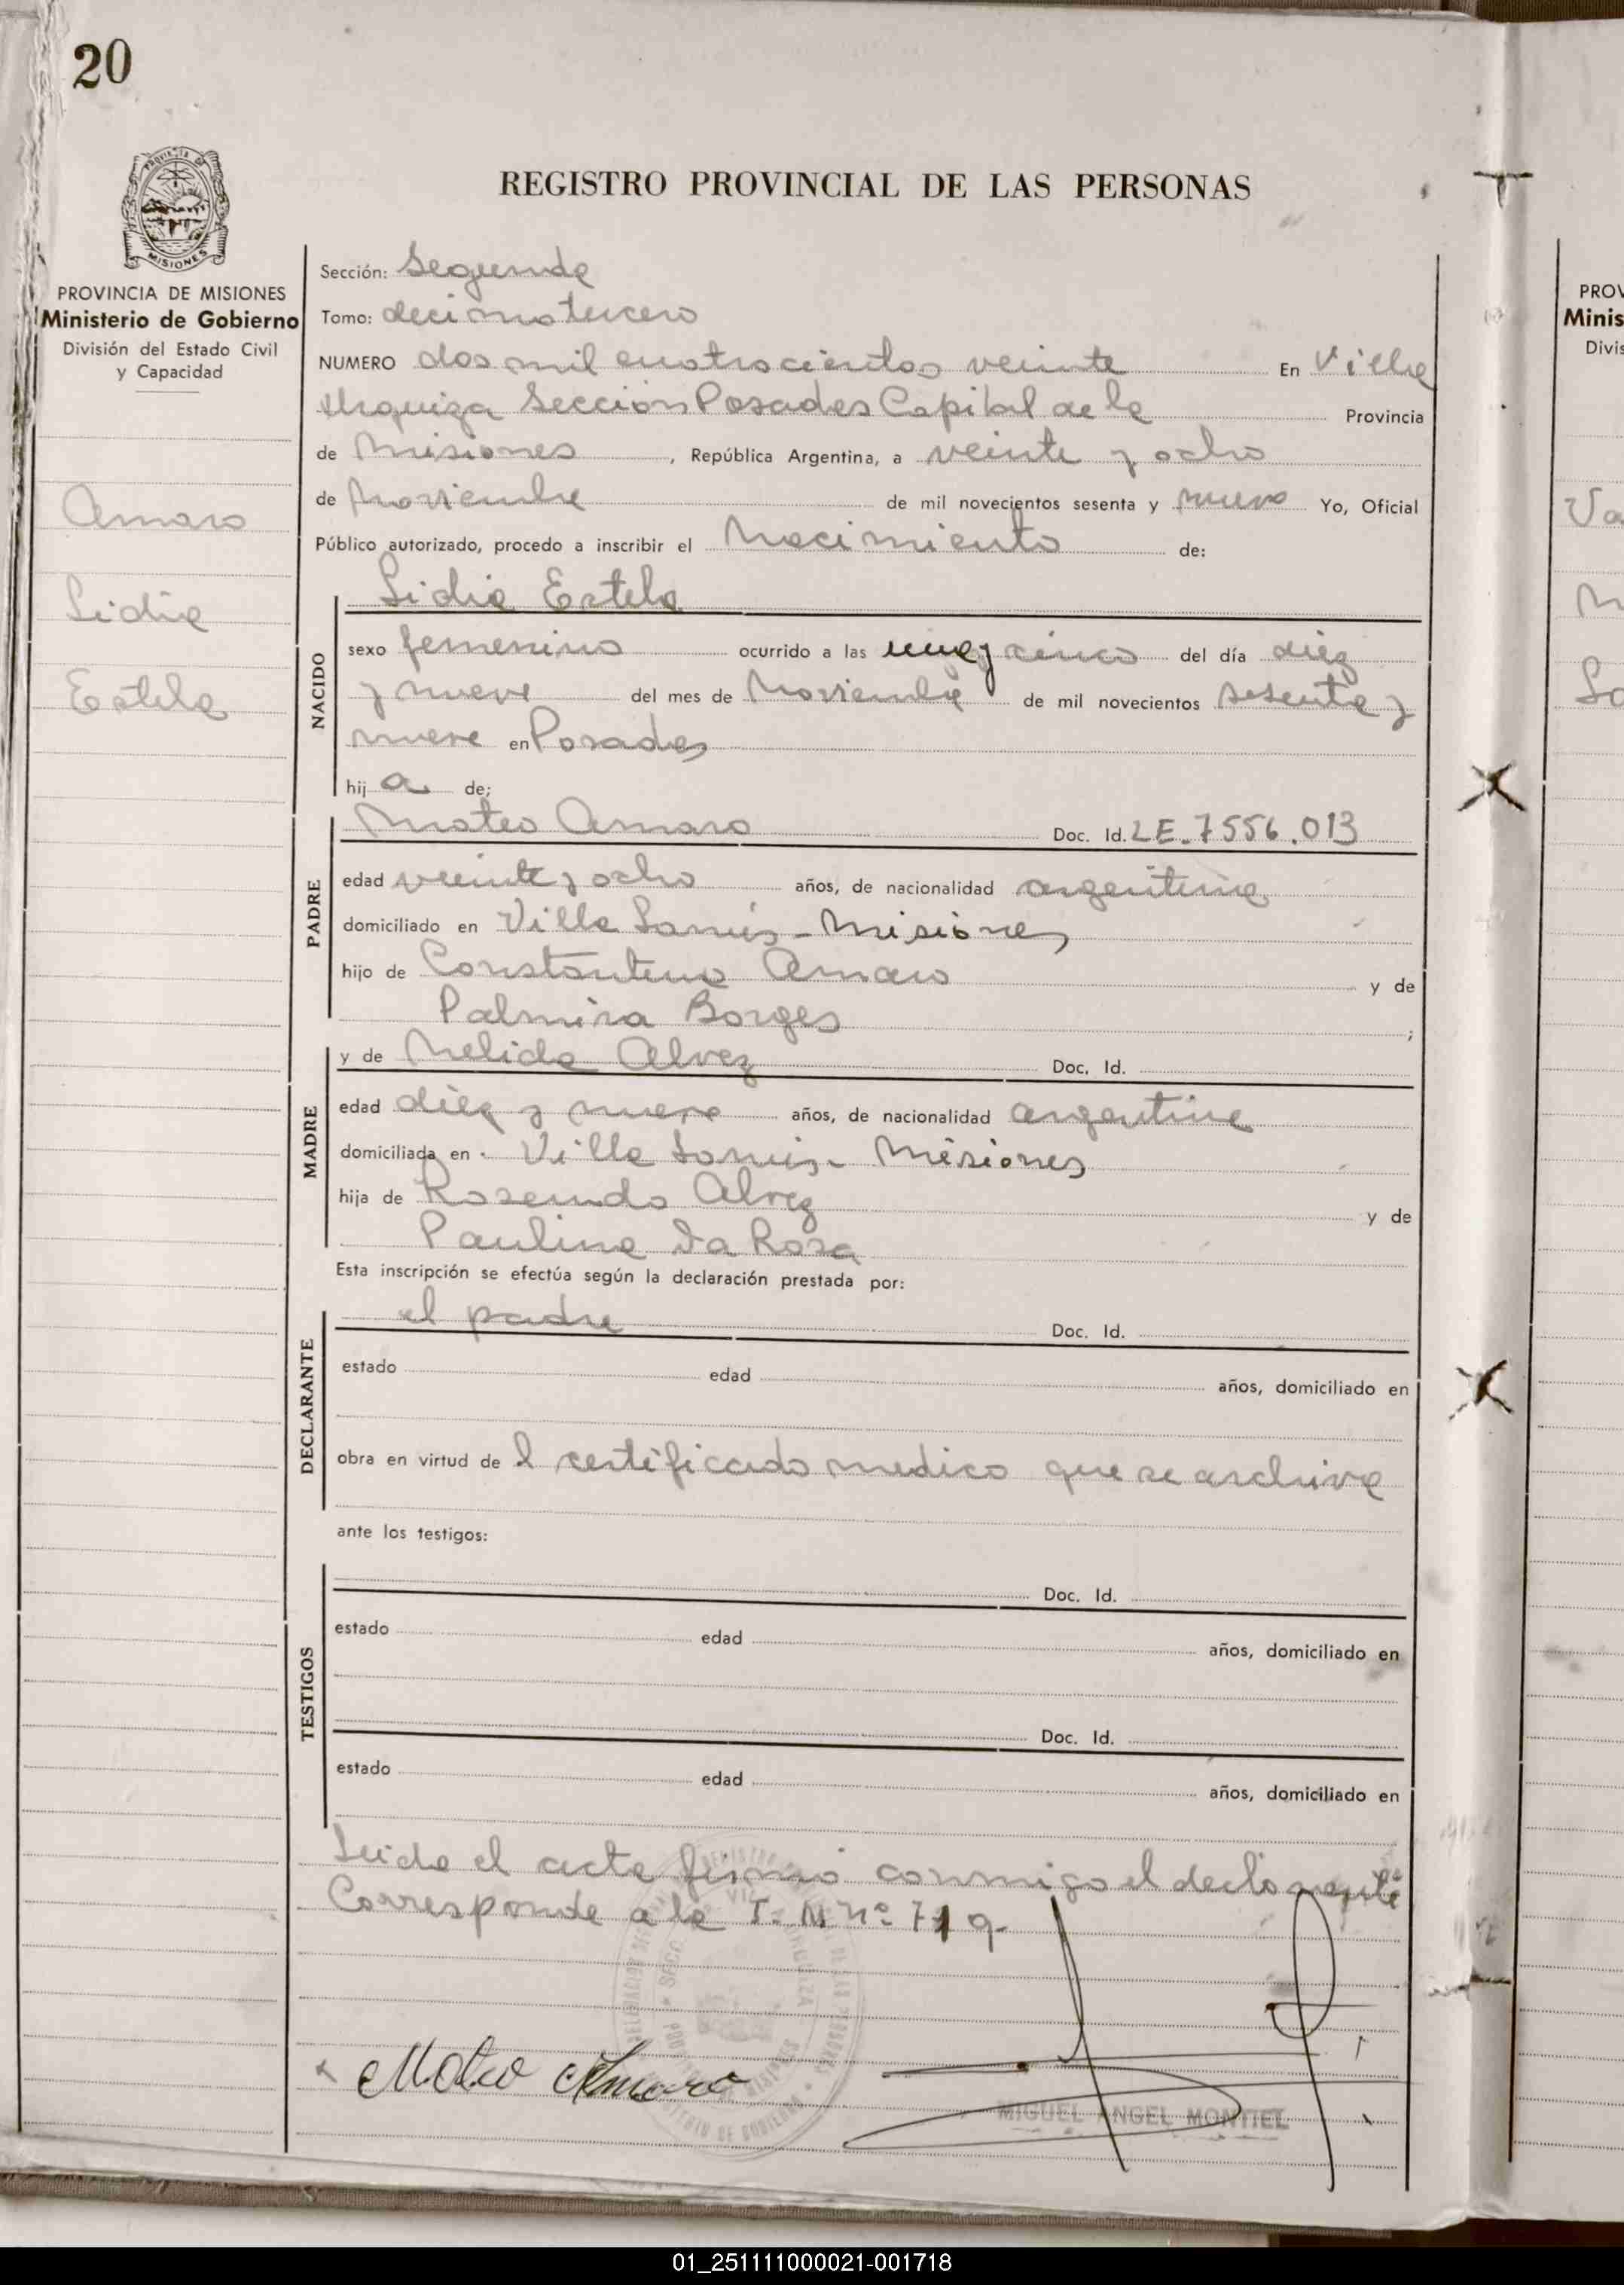 20
PROVINCIA DE MISIONES
REGISTRO PROVINCIAL DE LAS PERSONAS
PROVINCIA DE MISIONES
Ministerio de Gobierno
División del Estado Civil
y Capacidad
Amaro
Lidia
Estela
Sección: Segunda
Tomo: decimo tercero
NUMERO dos mil cuatrocientos veinte En Villa
Urquiza Sección Posadas Capital de la Provincia
de Misiones, República Argentina, a veinte y ocho
de Noviembre de mil novecientos sesenta y nueve Yo, Oficial
Público autorizado, procedo a inscribir el Nacimiento de:
Lidia Estela
NACIDO
sexo femenino ocurrido a las una y cinco del día diez
y nueve del mes de Noviembre de mil novecientos sesenta y
nueve en Posadas
hij a de;
PADRE
Mateo Amaro Doc. Id. LE. 7556.013
edad veinte y ocho años, de nacionalidad argentina
domiciliado en Villa Lanús - Misiones
hijo de Constantino Amaro y de
Palmira Borges ;
MADRE
y de Nelida Alvez Doc. Id.
edad diez y nueve años, de nacionalidad argentina
domiciliada en Villa Lanús - Misiones
hija de Rosendo Alvez y de
Paulina Da Rosa
Esta inscripción se efectúa según la declaración prestada por:
DECLARANTE
el padre Doc. Id.
estado edad años, domiciliado en
obra en virtud de l certificado medico que se archiva
ante los testigos:
TESTIGOS
Doc. Id.
estado edad años, domiciliado en
Doc. Id.
estado edad años, domiciliado en
Leida el acta firmó conmigo el declarante
Corresponde a la T. M nº 719.
Mateo Amaro
MIGUEL ANGEL MONTIEL
PROV
Minis
Divis
01_251111000021-001718